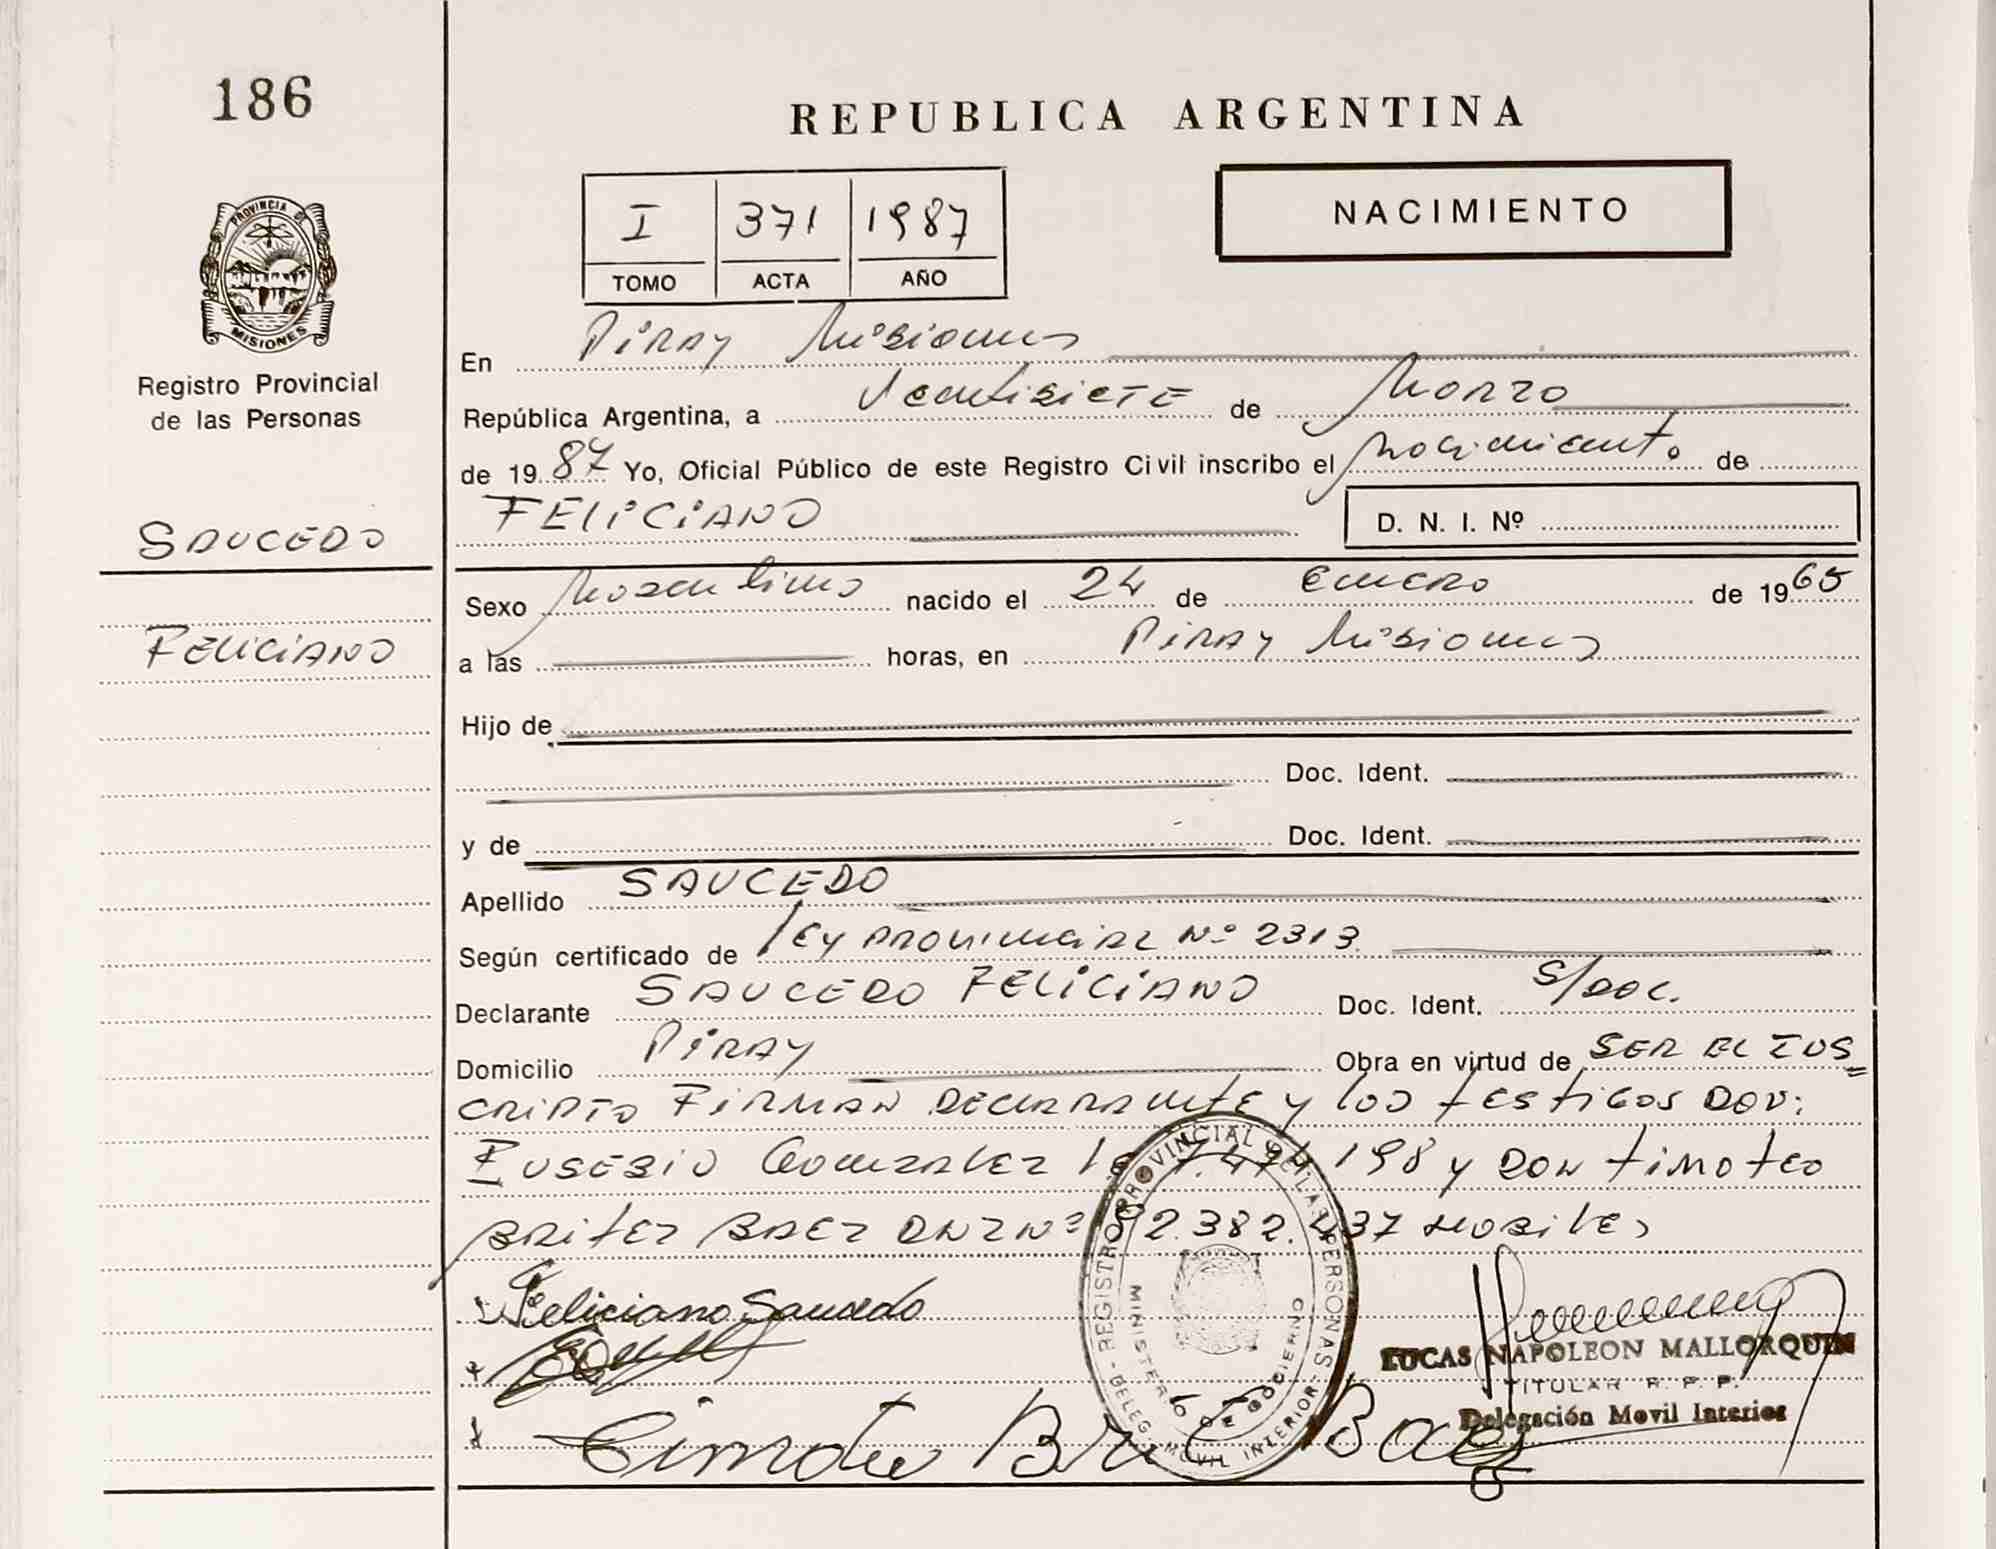 186
REPUBLICA ARGENTINA
PROVINCIA DE
MISIONES
Registro Provincial
de las Personas
I 371 1987
TOMO ACTA AÑO
NACIMIENTO
En Piray Misiones
República Argentina, a Veintisiete de Marzo
de 19 87 Yo, Oficial Público de este Registro Civil inscribo el nacimiento de
FELICIANO D. N. I. Nº
SAUCEDO
FELICIANO
Sexo Masculino nacido el 24 de Enero de 19 65
a las horas, en Piray Misiones
Hijo de
Doc. Ident.
y de Doc. Ident.
Apellido SAUCEDO
Según certificado de Ley Provincial Nº 2313
Declarante SAUCEDO FELICIANO Doc. Ident. S/DOC.
Domicilio Piray Obra en virtud de SER EL INS
CRIPTO FIRMAN DECLARANTE y los testigos DON:
EUSEBIO Gonzalez 198 y DON timoteo
BRITEZ BAEZ DNI Nº 92.382.437 HABILES
Feliciano Saucedo
Timoteo Brite Baez
REGISTRO PROVINCIAL DE LAS PERSONAS
MINISTERIO DE GOBIERNO
DELEG. MOVIL INTERIOR
LUCAS NAPOLEON MALLORQUIN
TITULAR R. P. P.
Delegación Movil Interior